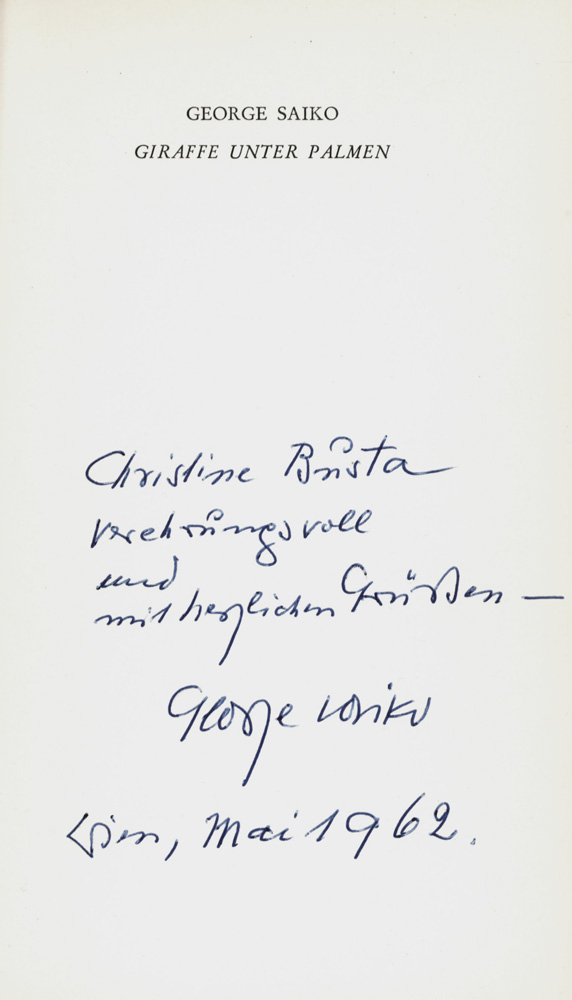 GEORGE SAIKO
GIRAFFE UNTER PALMEN
Christine Busta
verehrungsvoll
und
mit herzlichen Grüßen —
George Saiko
Wien, Mai 1962.